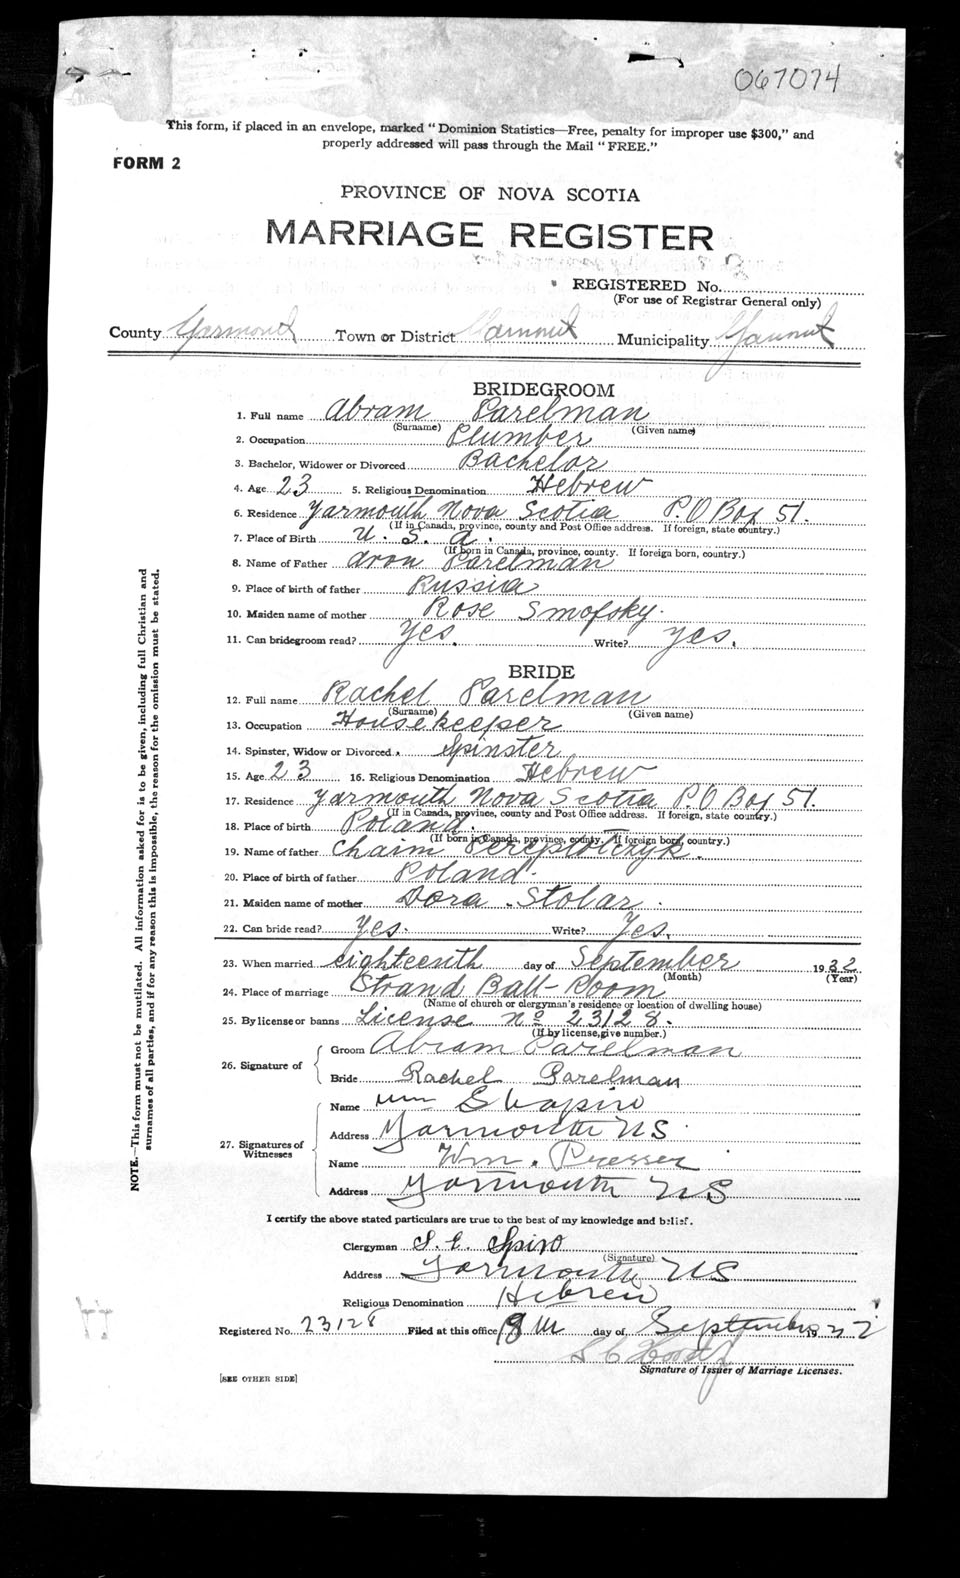 067074
This form, if placed in an envelope, marked "Dominion Statistics—Free, penalty for improper use $300," and
properly addressed will pass through the Mail "FREE."
FORM 2
PROVINCE OF NOVA SCOTIA
MARRIAGE REGISTER
REGISTERED No.
(For use of Registrar General only)
County Yarmouth Town or District Yarmouth Municipality Yarmouth
BRIDEGROOM
1. Full name Abram Parelman
(Surname) (Given name)
2. Occupation Plumber
3. Bachelor, Widower or Divorced Bachelor
4. Age 23 5. Religious Denomination Hebrew
6. Residence Yarmouth Nova Scotia P.O Box 51.
(If in Canada, province, county and Post Office address. If foreign, state country.)
7. Place of Birth U. S. A.
(If born in Canada, province, county. If foreign born, country.)
8. Name of Father Aron Parelman
9. Place of birth of father Russia
10. Maiden name of mother Rose Smofsky.
11. Can bridegroom read? Yes. Write? Yes.
BRIDE
12. Full name Rachel Parelman
(Surname) (Given name)
13. Occupation Housekeeper
14. Spinster, Widow or Divorced. Spinster
15. Age 23 16. Religious Denomination Hebrew
17. Residence Yarmouth Nova Scotia P.O Box 51.
(If in Canada, province, county and Post Office address. If foreign, state country.)
18. Place of birth Poland.
(If born in Canada, province, county. If foreign born, country.)
19. Name of father Chaim
20. Place of birth of father Poland.
21. Maiden name of mother Dora Stolar.
22. Can bride read? Yes. Write? Yes.
23. When married eighteenth day of September 1932
(Month) (Year)
24. Place of marriage Strand Ball-Room
(Name of church or clergyman's residence or location of dwelling house)
25. By license or banns License No 23128.
(If by license, give number.)
26. Signature of
Groom Abram Parelman
Bride Rachel Parelman
27. Signatures of Witnesses
Name Wm Shapiro
Address Yarmouth NS
Name Wm. Presser
Address Yarmouth NS
I certify the above stated particulars are true to the best of my knowledge and belief.
Clergyman S. E. Spiro
(Signature)
Address Yarmouth NS
Religious Denomination Hebrew
Registered No. 23128 Filed at this office 19th day of September 1932
Signature of Issuer of Marriage Licenses.
[SEE OTHER SIDE]
NOTE.—This form must not be mutilated. All information asked for is to be given, including full Christian and
surnames of all parties, and if for any reason this is impossible, the reason for the omission must be stated.